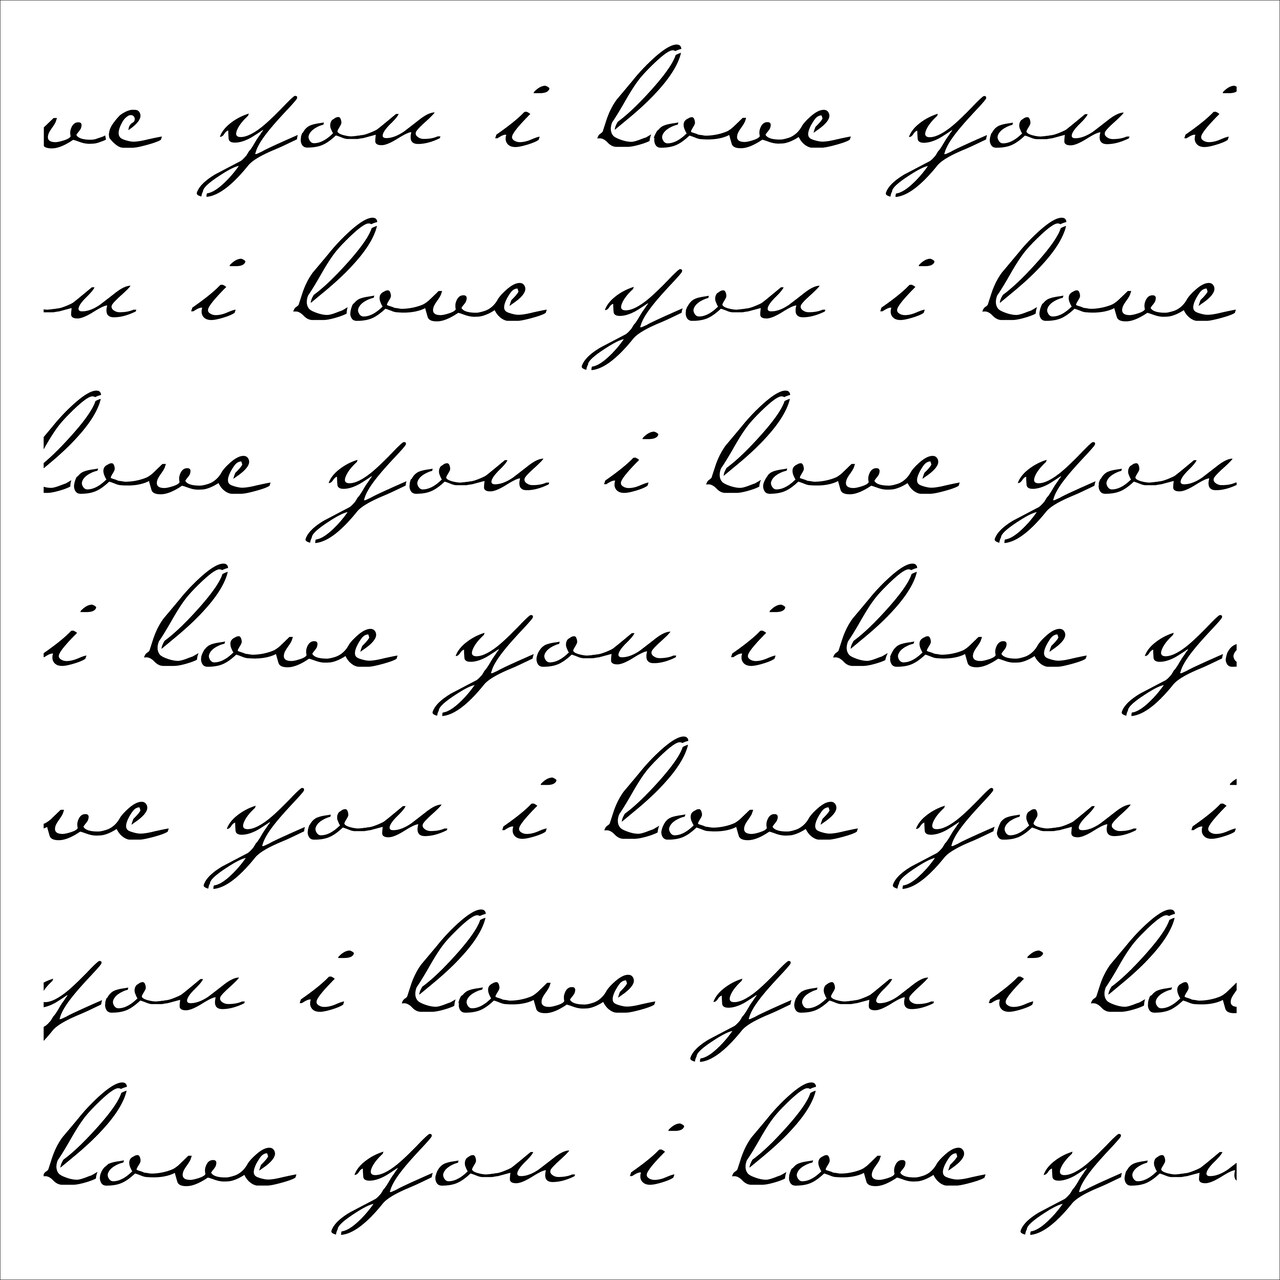 ve you i love you i
u i love you i love
love you i love you
i love you i love yo
ve you i love you i
you i love you i lov
love you i love you